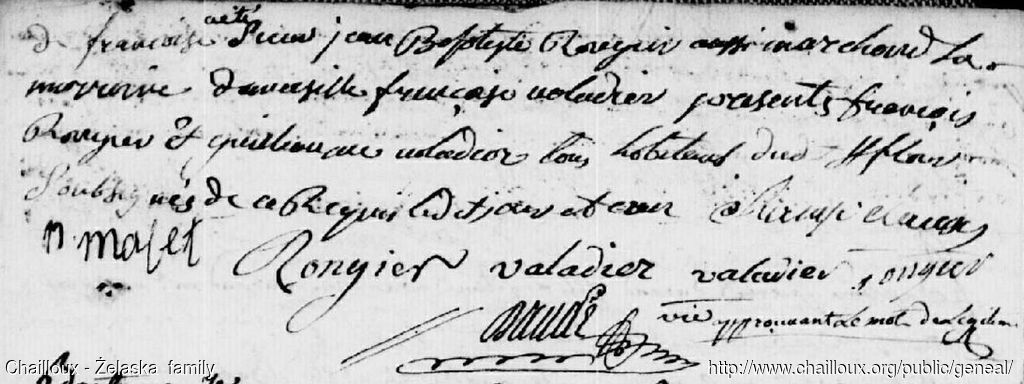 été
de francoise Sieur jean Baptiste Rongier aussi marchand la
marraine damoiselle françoise valadier presents françois
Rongier et guilleaume valadier tous habitans dud St flour
Soubsignés de ce Requis led jour et an
n. maset Rongier valadier valadier rongier
vic approuvant Le mot de
Chailloux - Żelaska family http://www.chailloux.org/public/geneal/